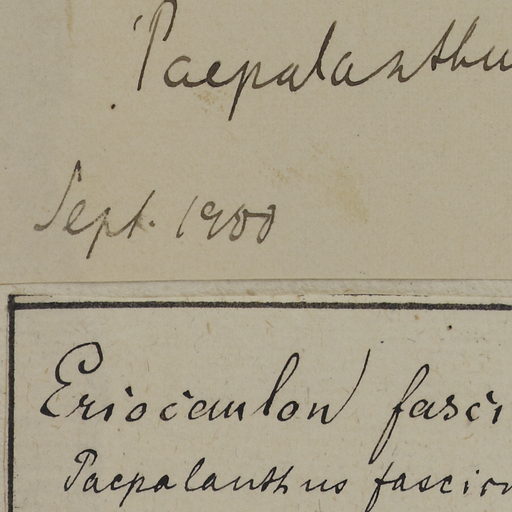 Paepalanthu
Sept. 1900
Eriocaulon fasci
Paepalanthus fascicu